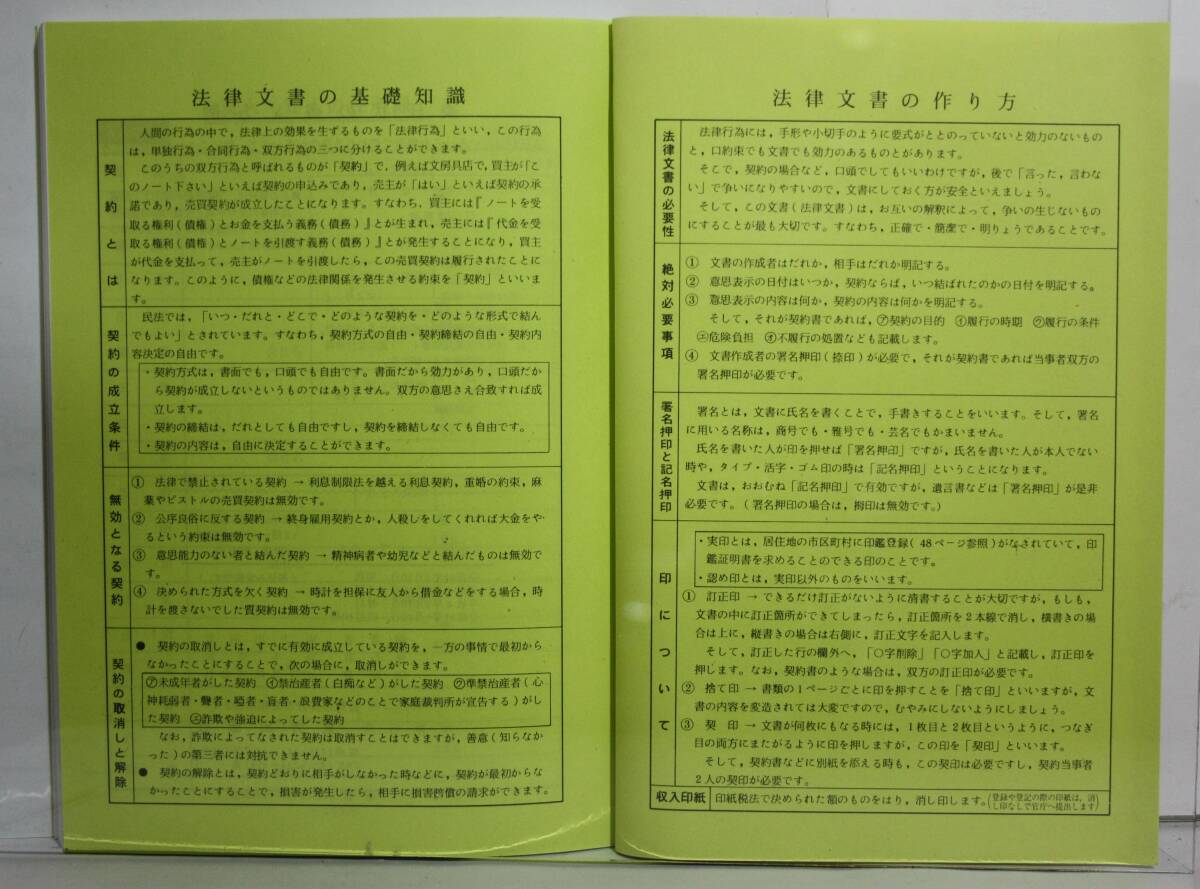 法律文書の基礎知識
契約とは
人間の行為の中で，法律上の効果を生ずるものを「法律行為」といい，この行為
は，単独行為・合同行為・双方行為の三つに分けることができます。
このうちの双方行為と呼ばれるものが「契約」で，例えば文房具店で，買主が「こ
のノート下さい」といえば契約の申込みであり，売主が「はい」といえば契約の承
諾であり，売買契約が成立したことになります。すなわち，買主には『ノートを受
取る権利（債権）とお金を支払う義務（債務）』とが生まれ，売主には『代金を受
取る権利（債権）とノートを引渡す義務（債務）』とが発生することになり，買主
が代金を支払って，売主がノートを引渡したら，この売買契約は履行されたことに
なります。このように，債権などの法律関係を発生させる約束を「契約」といいま
す。
契約の成立条件
民法では，「いつ・だれと・どこで・どのような契約を・どのような形式で結ん
でもよい」とされています。すなわち，契約方式の自由・契約締結の自由・契約内
容決定の自由です。
・契約方式は，書面でも，口頭でも自由です。書面だから効力があり，口頭だか
ら契約が成立しないというものではありません。双方の意思さえ合致すれば成
立します。
・契約の締結は，だれとしても自由ですし，契約を締結しなくても自由です。
・契約の内容は，自由に決定することができます。
無効となる契約
① 法律で禁止されている契約 → 利息制限法を越える利息契約，重婚の約束，麻
薬やピストルの売買契約は無効です。
② 公序良俗に反する契約 → 終身雇用契約とか，人殺しをしてくれれば大金をや
るという約束は無効です。
③ 意思能力のない者と結んだ契約 → 精神病者や幼児などと結んだものは無効で
す。
④ 決められた方式を欠く契約 → 時計を担保に友人から借金などをする場合，時
計を渡さないでした質契約は無効です。
契約の取消しと解除
● 契約の取消しとは，すでに有効に成立している契約を，一方の事情で最初から
なかったことにすることで，次の場合に，取消しができます。
㋐未成年者がした契約 ㋑禁治産者（白痴など）がした契約 ㋒準禁治産者（心
神耗弱者・聾者・啞者・盲者・浪費家などのことで家庭裁判所が宣告する）がし
た契約 ㋓詐欺や強迫によってした契約
なお，詐欺によってなされた契約は取消すことはできますが，善意（知らなか
った）の第三者には対抗できません。
● 契約の解除とは，契約どおりに相手がしなかった時などに，契約が最初からな
かったことにすることで，損害が発生したら，相手に損害賠償の請求ができます。
法律文書の作り方
法律文書の必要性
法律行為には，手形や小切手のように要式がととのっていないと効力のないもの
と，口約束でも文書でも効力のあるものとがあります。
そこで，契約の場合など，口頭でしてもいいわけですが，後で「言った，言わな
い」で争いになりやすいので，文書にしておく方が安全といえましょう。
そして，この文書（法律文書）は，お互いの解釈によって，争いの生じないもの
にすることが最も大切です。すなわち，正確で・簡潔で・明りょうであることです。
絶対必要事項
① 文書の作成者はだれか，相手はだれか明記する。
② 意思表示の日付はいつか，契約ならば，いつ結ばれたのかの日付を明記する。
③ 意思表示の内容は何か，契約の内容は何かを明記する。
そして，それが契約書であれば，㋐契約の目的 ㋑履行の時期 ㋒履行の条件
㋓危険負担 ㋔不履行の処置なども記載します。
④ 文書作成者の署名押印（捺印）が必要で，それが契約書であれば当事者双方の
署名押印が必要です。
署名押印と記名押印
署名とは，文書に氏名を書くことで，手書きすることをいいます。そして，署名
に用いる名称は，商号でも・雅号でも・芸名でもかまいません。
氏名を書いた人が印を押せば「署名押印」ですが，氏名を書いた人が本人でない
時や，タイプ・活字・ゴム印の時は「記名押印」ということになります。
文書は，おおむね「記名押印」で有効ですが，遺言書などは「署名押印」が是非
必要です。（署名押印の場合は，拇印は無効です。）
印について
・実印とは，居住地の市区町村に印鑑登録（48ページ参照）がなされていて，印
鑑証明書を求めることのできる印のことです。
・認め印とは，実印以外のものをいいます。
① 訂正印 → できるだけ訂正がないように清書することが大切ですが，もしも，
文書の中に訂正箇所ができてしまったら，訂正箇所を2本線で消し，横書きの場
合は上に，縦書きの場合は右側に，訂正文字を記入します。
そして，訂正した行の欄外へ，「〇字削除」「〇字加入」と記載し，訂正印を
押します。なお，契約書のような場合は，双方の訂正印が必要です。
② 捨て印 → 書類の1ページごとに印を押すことを「捨て印」といいますが，文
書の内容を変造されては大変ですので，むやみにしないようにしましょう。
③ 契 印 → 文書が何枚にもなる時には，1枚目と2枚目というように，つなぎ
目の両方にまたがるように印を押しますが，この印を「契印」といいます。
そして，契約書などに別紙を添える時も，この契印は必要ですし，契約当事者
2人の契印が必要です。
収入印紙
印紙税法で決められた額のものをはり，消し印します。（登録や登記の際の印紙は，消
し印なしで官庁へ提出します）